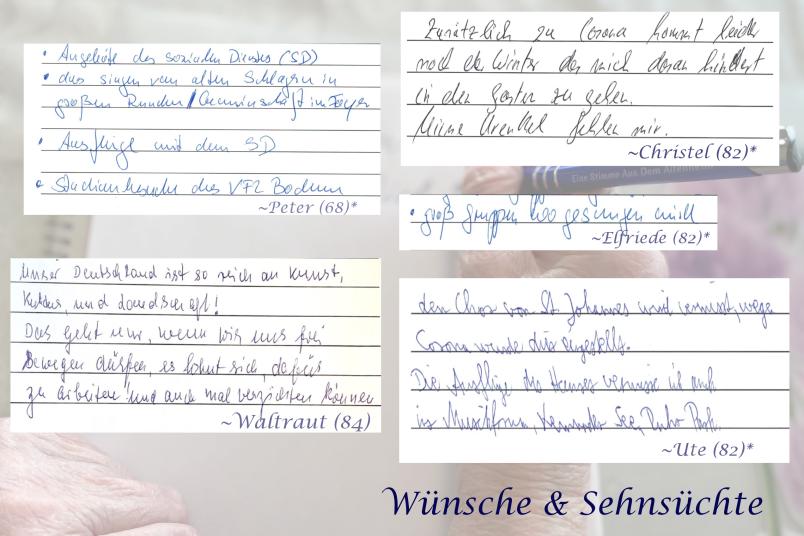 • Angebote des sozialen Dienstes (SD)
• das singen von alten Schlagern in
großen Runden / Gemeinschaft im Foyer
• Ausflüge mit dem SD
• Stadionbesuche des VFL Bochum
~Peter (68)*
Zusätzlich zu Corona kommt leider
noch der Winter der mich daran hindert
in den Garten zu gehen.
Meine Urenkel fehlen mir.
~Christel (82)*
Eine Stimme Aus Dem Altenheim
• groß gruppen wo gesungen wird
~Elfriede (82)*
Unser Deutschland ist so reich an Kunst,
Kultur, und Landschaft!
Das geht nur, wenn wir uns frei
Bewegen dürfen, es lohnt sich, dafür
zu arbeiten und auch mal verzichten können
~Waltraut (84)
den Chor von St. Johannes wird vermisst, wegen
Corona wurde dies eingestellt.
Die Ausflüge des Hauses vermisse ich auch
ins Musikforum, Kemnader See, Ruhr Park.
~Ute (82)*
Wünsche & Sehnsüchte